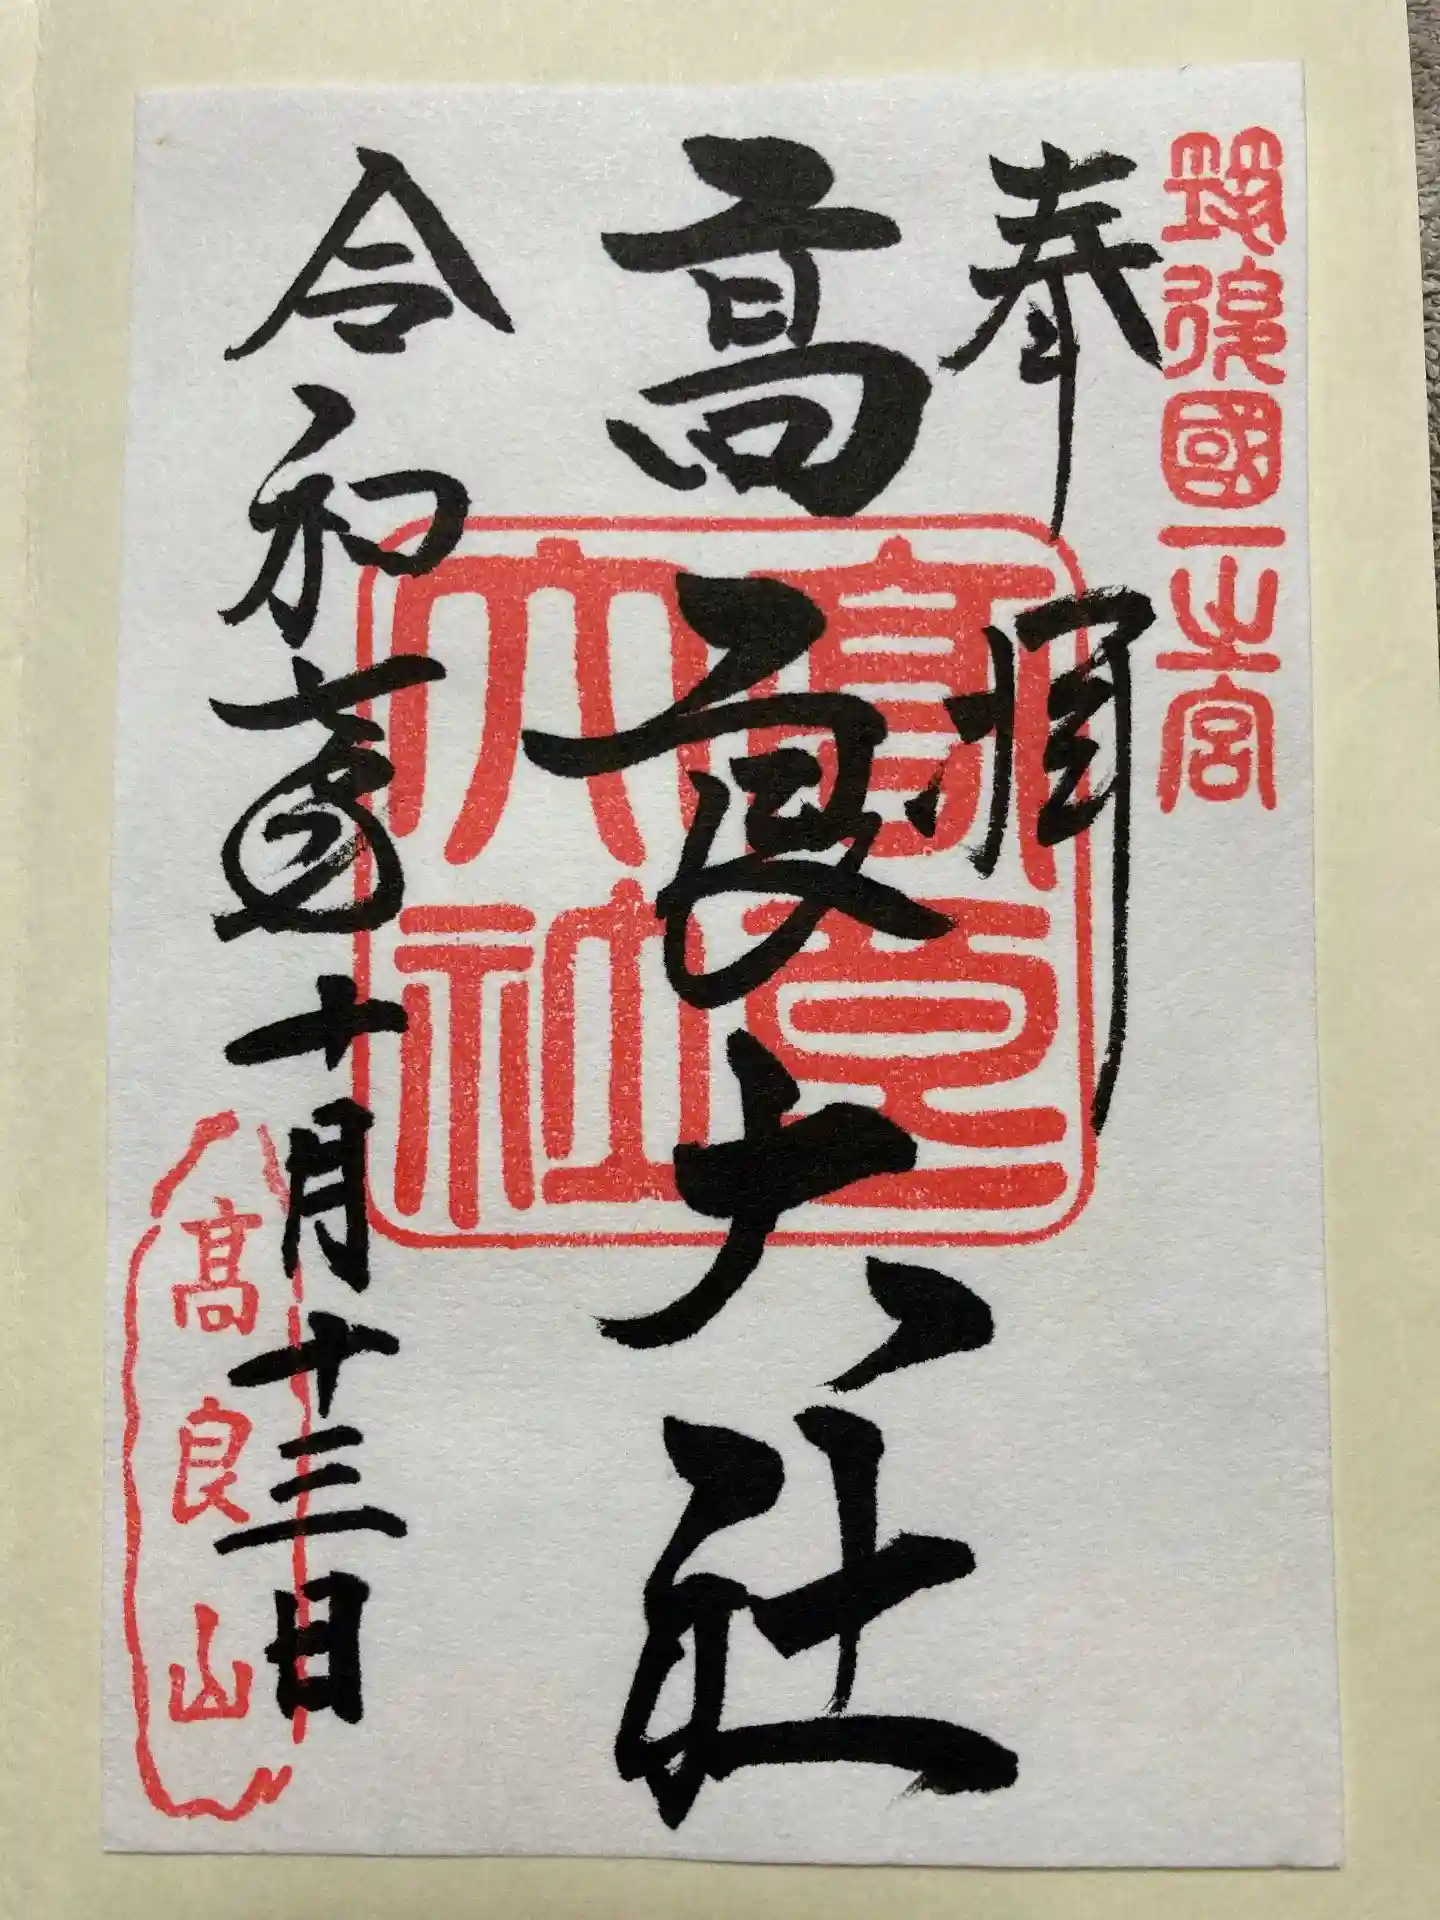 筑後國一之宮
奉拝
高良大社
高良大社
令和年十月十三日
高良山